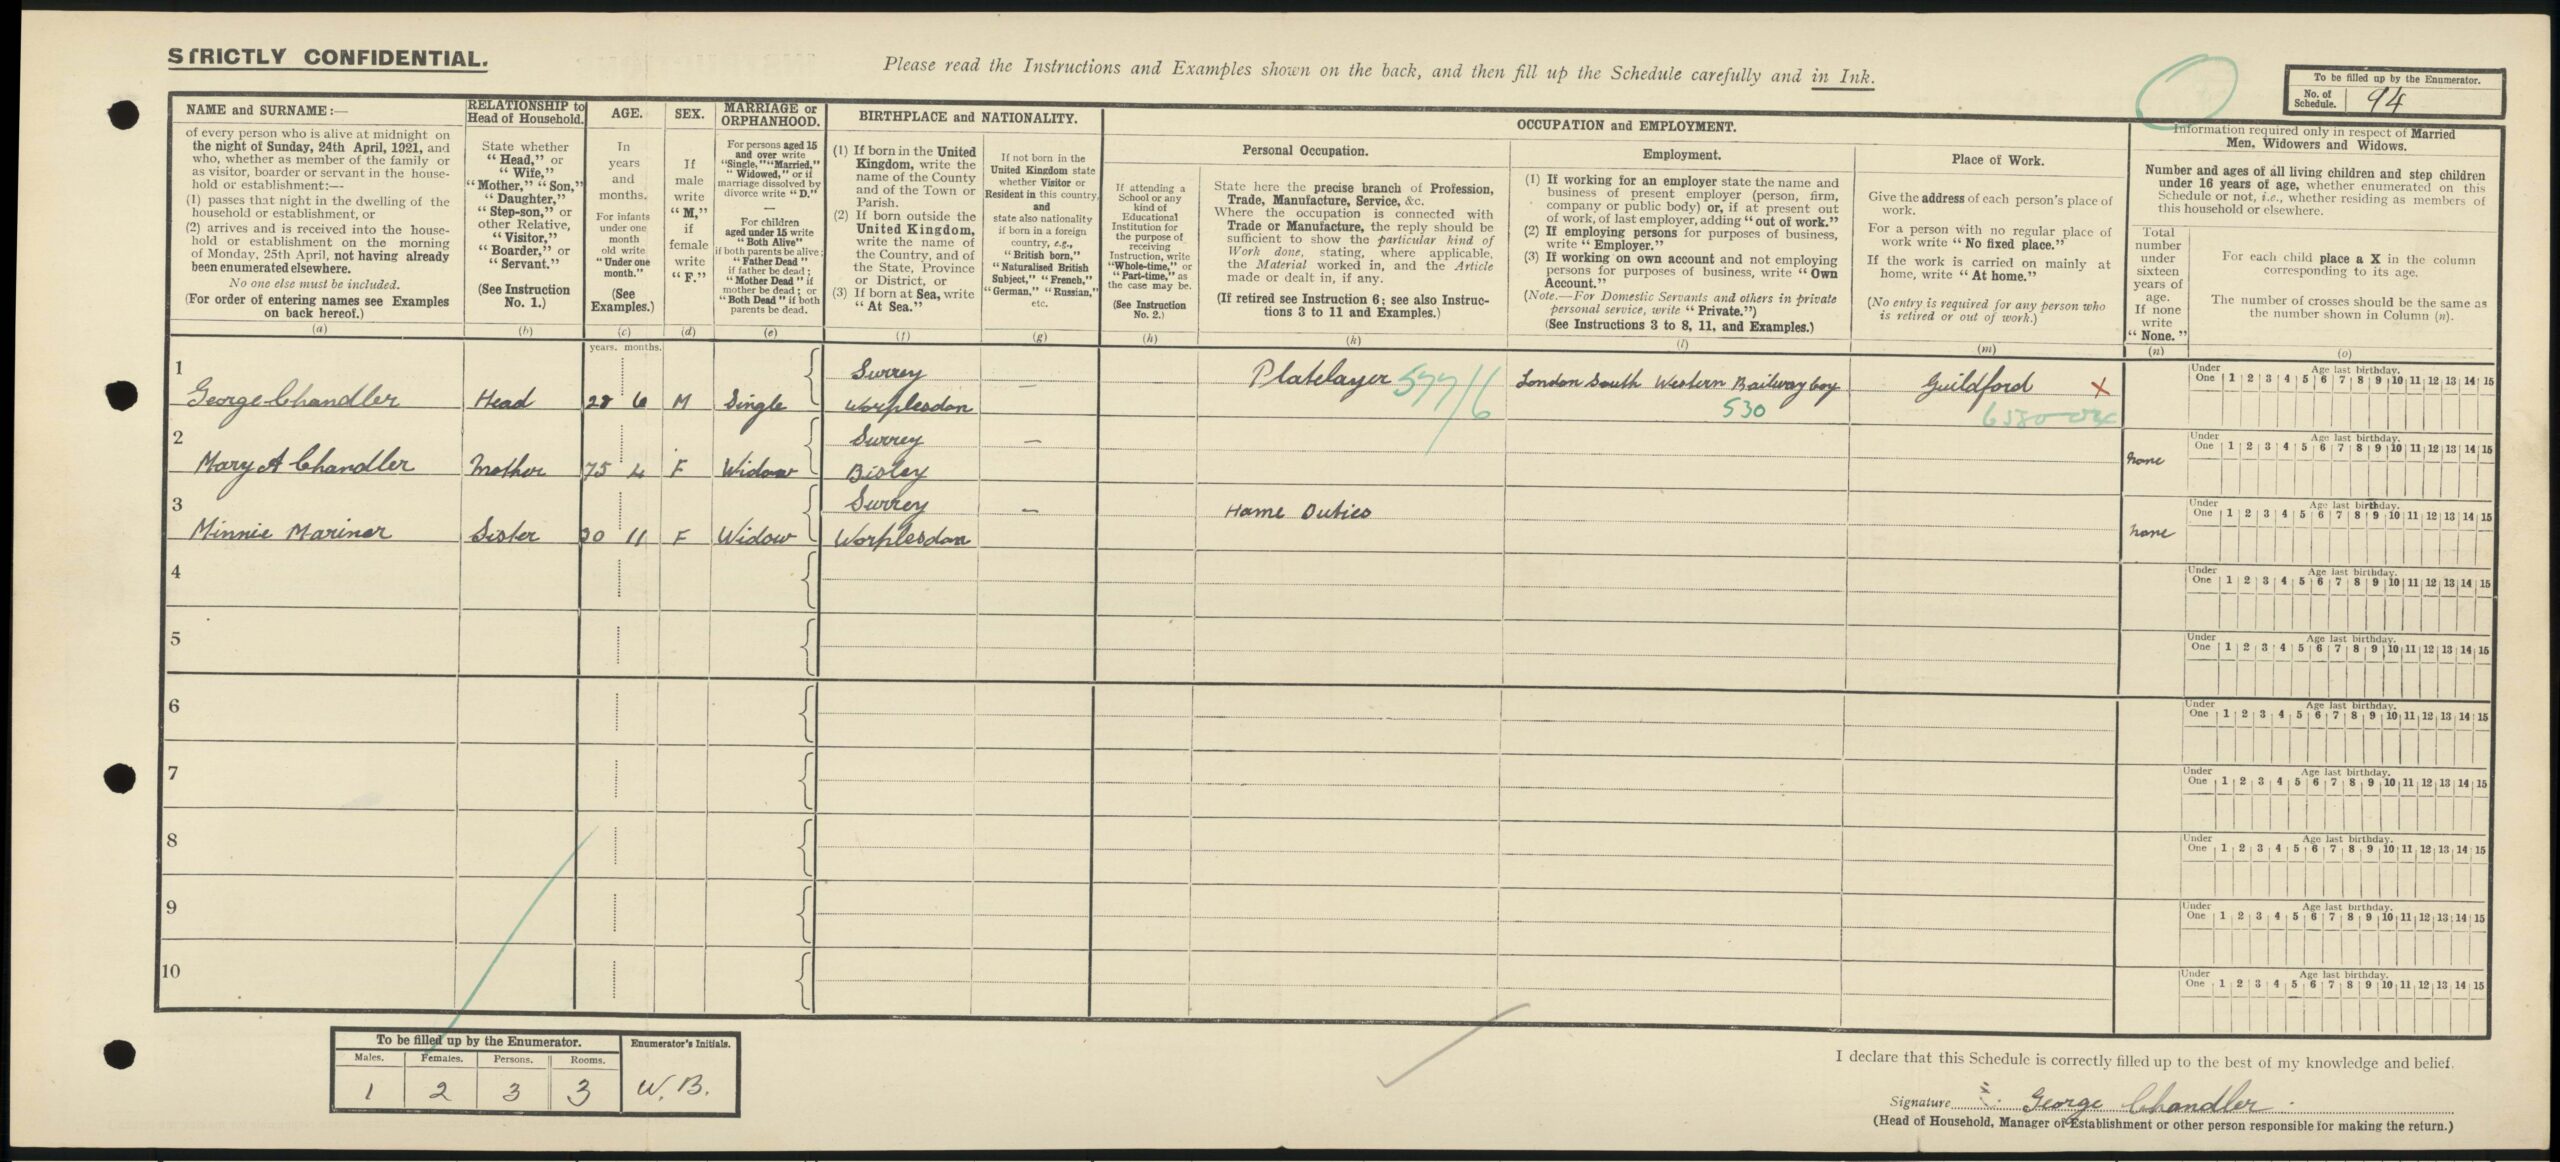 STRICTLY CONFIDENTIAL.
Please read the Instructions and Examples shown on the back, and then fill up the Schedule carefully and in Ink.
To be filled up by the Enumerator.
No. of Schedule. 94
NAME and SURNAME:—
of every person who is alive at midnight on
the night of Sunday, 24th April, 1921, and
who, whether as member of the family or
as visitor, boarder or servant in the house-
hold or establishment:—
(1) passes that night in the dwelling of the
household or establishment, or
(2) arrives and is received into the house-
hold or establishment on the morning
of Monday, 25th April, not having already
been enumerated elsewhere.
No one else must be included.
(For order of entering names see Examples
on back hereof.)
(a)
RELATIONSHIP to
Head of Household.
State whether
"Head," or
"Wife,"
"Mother," "Son,"
"Daughter,"
"Step-son," or
other Relative,
"Visitor,"
"Boarder," or
"Servant."
(See Instruction
No. 1.)
(b)
AGE.
In
years
and
months.
For infants
under one
month
old write
"Under one
month."
(See
Examples.)
(c)
SEX.
If
male
write
"M,"
if
female
write
"F."
(d)
MARRIAGE or
ORPHANHOOD.
For persons aged 15
and over write
"Single," "Married,"
"Widowed," or if
marriage dissolved by
divorce write "D."
—
For children
aged under 15 write
"Both Alive"
if both parents be alive;
"Father Dead"
if father be dead;
"Mother Dead" if
mother be dead; or
"Both Dead" if both
parents be dead.
(e)
BIRTHPLACE and NATIONALITY.
(1) If born in the United
Kingdom, write the
name of the County
and of the Town or
Parish.
(2) If born outside the
United Kingdom,
write the name of
the Country, and of
the State, Province
or District, or
(3) If born at Sea, write
"At Sea."
(f)
If not born in the
United Kingdom state
whether Visitor or
Resident in this country,
and
state also nationality
if born in a foreign
country, e.g.,
"British born,"
"Naturalised British
Subject," "French,"
"German," "Russian,"
etc.
(g)
OCCUPATION and EMPLOYMENT.
Personal Occupation.
If attending a
School or any
kind of
Educational
Institution for
the purpose of
receiving
Instruction, write
"Whole-time," or
"Part-time," as
the case may be.
(See Instruction
No. 2.)
(h)
State here the precise branch of Profession,
Trade, Manufacture, Service, &c.
Where the occupation is connected with
Trade or Manufacture, the reply should be
sufficient to show the particular kind of
Work done, stating, where applicable,
the Material worked in, and the Article
made or dealt in, if any.
(If retired see Instruction 6; see also Instruc-
tions 3 to 11 and Examples.)
(k)
Employment.
(1) If working for an employer state the name and
business of present employer (person, firm,
company or public body) or, if at present out
of work, of last employer, adding "out of work."
(2) If employing persons for purposes of business,
write "Employer."
(3) If working on own account and not employing
persons for purposes of business, write "Own
Account."
(Note.—For Domestic Servants and others in private
personal service, write "Private.")
(See Instructions 3 to 8, 11, and Examples.)
(l)
Place of Work.
Give the address of each person's place of
work.
For a person with no regular place of
work write "No fixed place."
If the work is carried on mainly at
home, write "At home."
(No entry is required for any person who
is retired or out of work.)
(m)
Information required only in respect of Married
Men, Widowers and Widows.
Number and ages of all living children and step children
under 16 years of age, whether enumerated on this
Schedule or not, i.e., whether residing as members of
this household or elsewhere.
Total
number
under
sixteen
years of
age.
If none
write
"None."
(n)
For each child place a X in the column
corresponding to its age.
The number of crosses should be the same as
the number shown in Column (n).
(o)
years. months.
1 George Chandler Head 28 6 M Single Surrey Worplesdon — Platelayer 577/6 London South Western Railway Coy 530 Guildford X
Under One Age last birthday. 1 2 3 4 5 6 7 8 9 10 11 12 13 14 15
2 Mary A Chandler Mother 75 4 F Widow Surrey Bisley — none
Under One Age last birthday. 1 2 3 4 5 6 7 8 9 10 11 12 13 14 15
3 Minnie Mariner Sister 30 11 F Widow Surrey Worplesdon — Home Duties none
Under One Age last birthday. 1 2 3 4 5 6 7 8 9 10 11 12 13 14 15
4
Under One Age last birthday. 1 2 3 4 5 6 7 8 9 10 11 12 13 14 15
5
Under One Age last birthday. 1 2 3 4 5 6 7 8 9 10 11 12 13 14 15
6
Under One Age last birthday. 1 2 3 4 5 6 7 8 9 10 11 12 13 14 15
7
Under One Age last birthday. 1 2 3 4 5 6 7 8 9 10 11 12 13 14 15
8
Under One Age last birthday. 1 2 3 4 5 6 7 8 9 10 11 12 13 14 15
9
Under One Age last birthday. 1 2 3 4 5 6 7 8 9 10 11 12 13 14 15
10
Under One Age last birthday. 1 2 3 4 5 6 7 8 9 10 11 12 13 14 15
To be filled up by the Enumerator.
Enumerator's Initials.
Males. Females. Persons. Rooms.
1 2 3 3 W.B.
I declare that this Schedule is correctly filled up to the best of my knowledge and belief.
Signature George Chandler
(Head of Household, Manager of Establishment or other person responsible for making the return.)